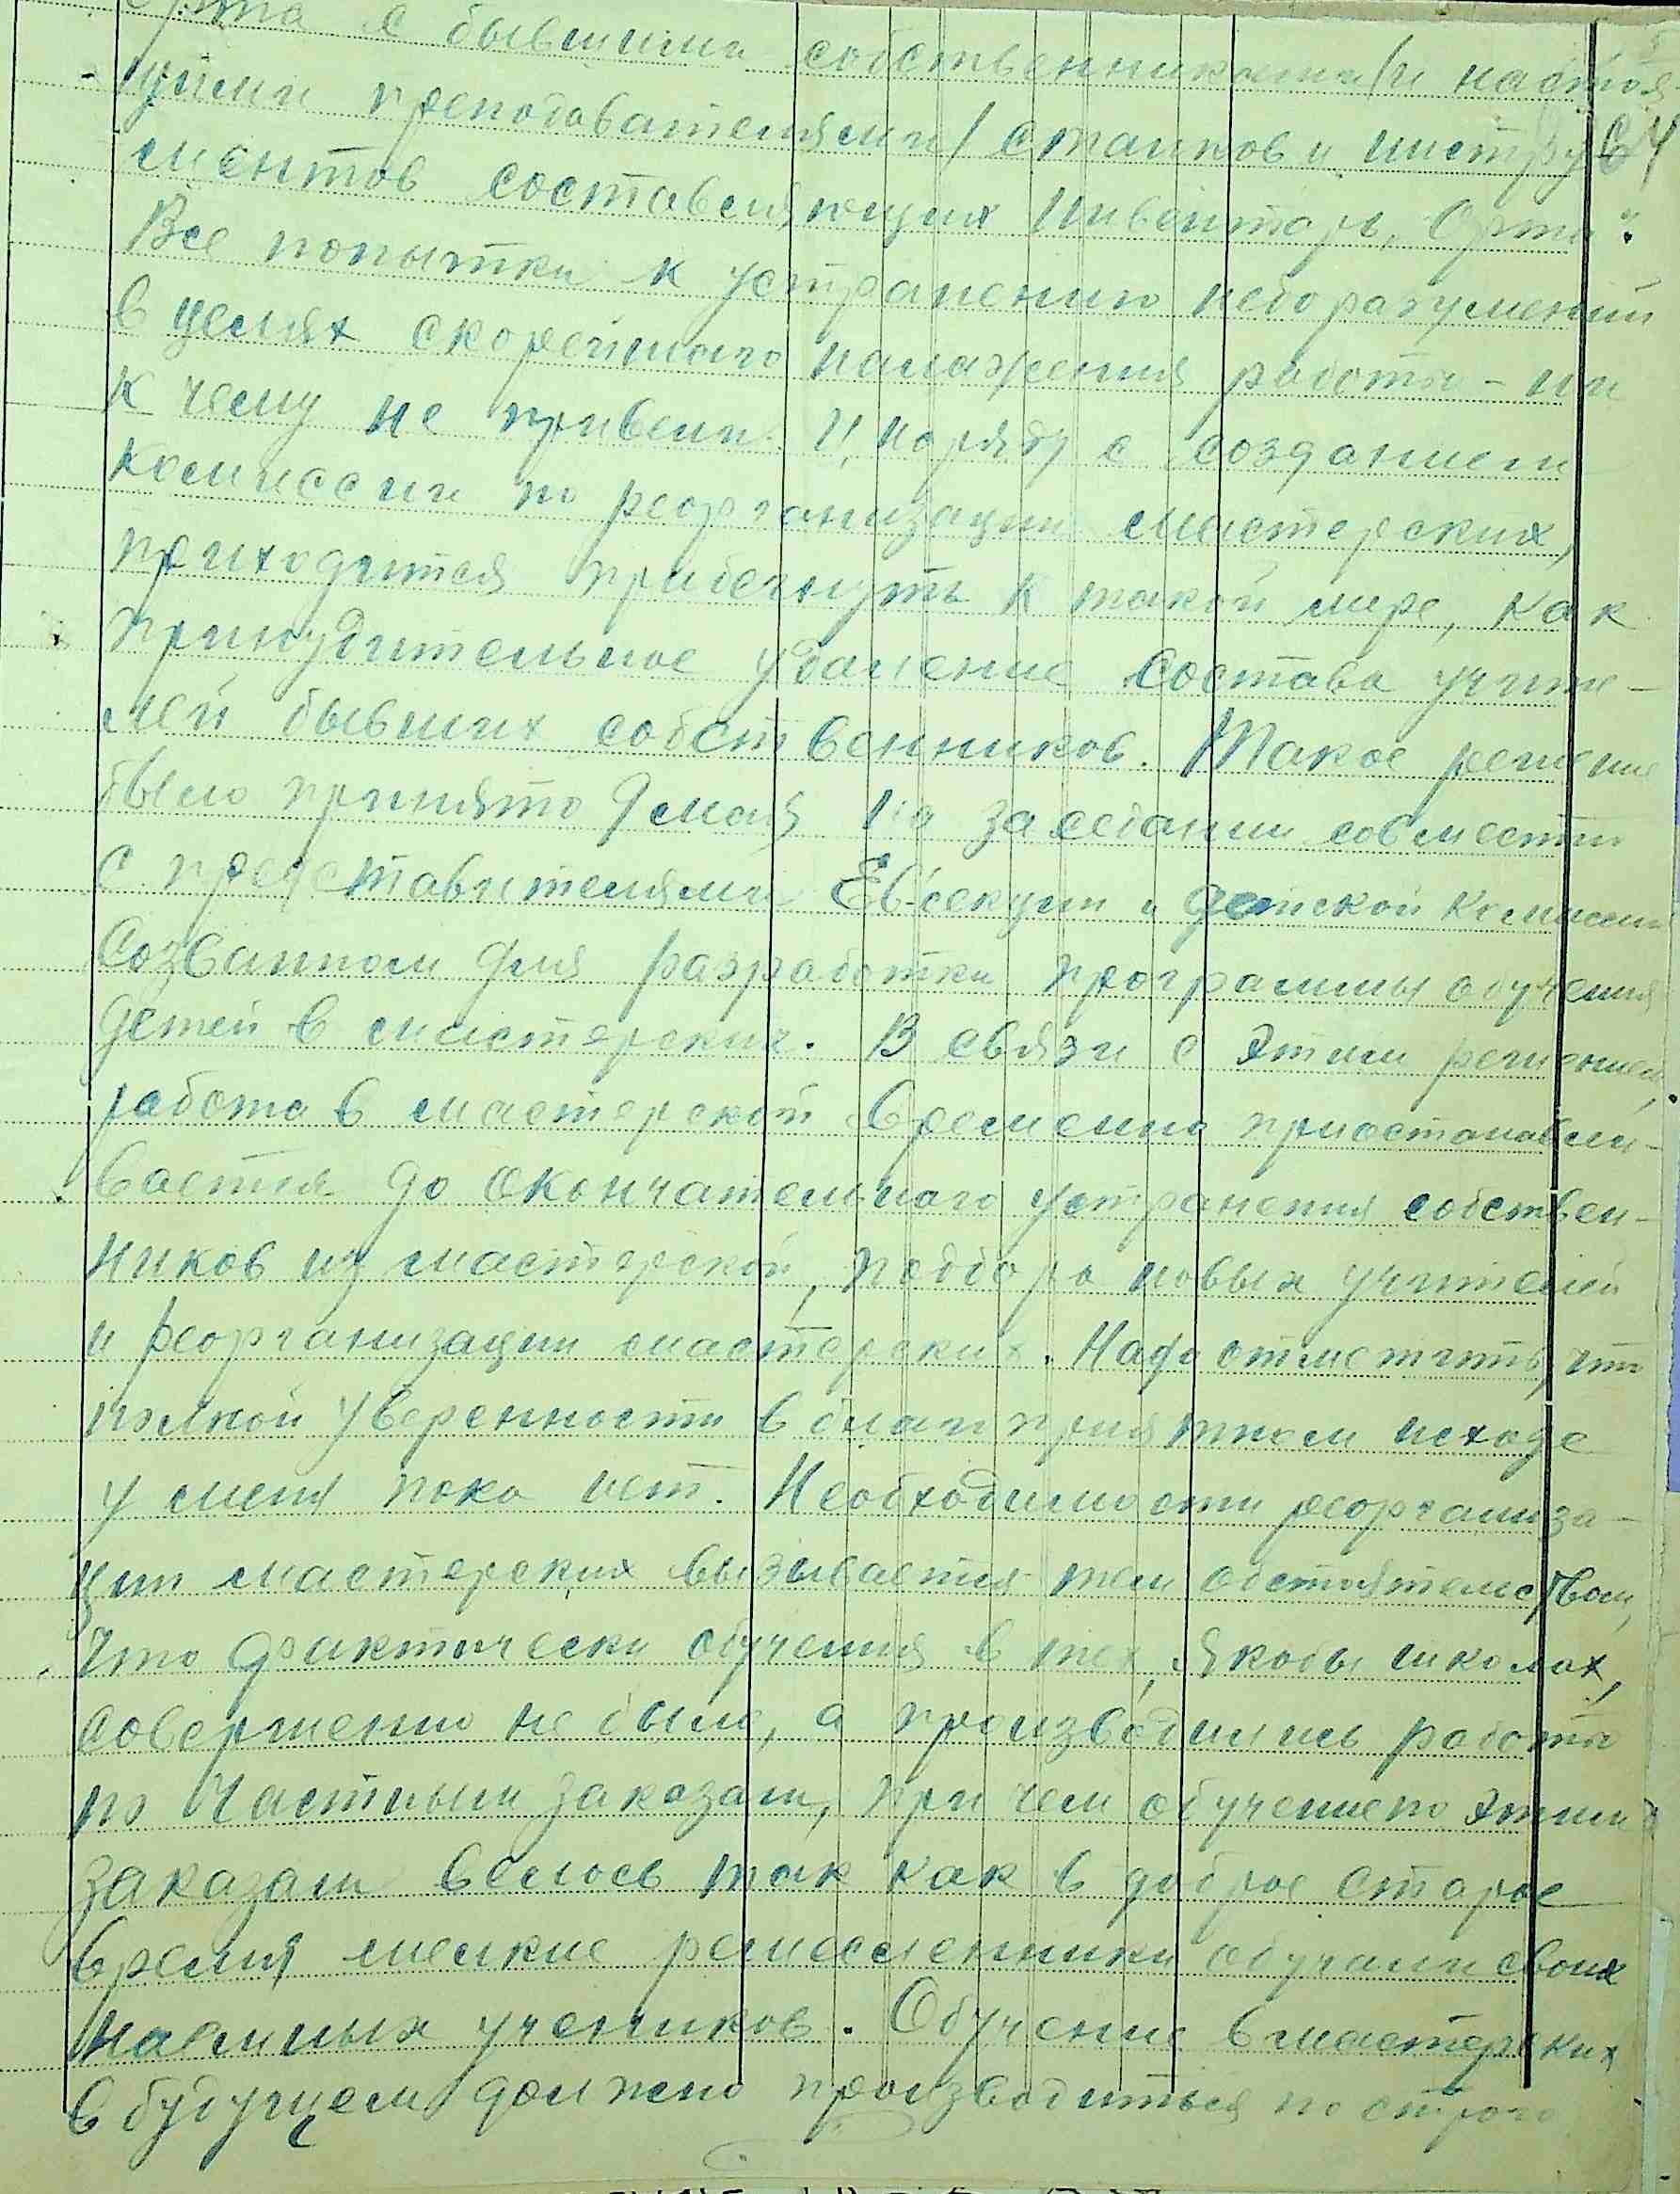 Орта с бывшими собственниками (и настоя-
щими преподавателями) станков и инстру
64
ментов составляющих инвентарь "Орта".
Все попытки к устранению недоразумений
в целях скорейшаго налажения работы - ни
к чему не привели. И, наряду с созданием
комиссии по реорганизации мастерских,
приходится прибегнуть к такой мере, как
принудительное удаление состава учите-
лей бывших собственников. Такое решение
было принято 9 мая на заседании совместно
с представителями Евсекции и детской комиссии
созванном для разработки программы обучения
детей в мастерских. В связи с этим решением,
работа в мастерской временно приостанавли-
вается до окончательнаго устранения собствен-
ников из мастерской, подбора новых учителей
и реорганизации мастерских. Надо отметить, что
полной уверенности в благоприятном исходе
у меня пока нет. Необходимости реорганиза-
ции мастерских вызывается тем обстоятельством,
что фактически обучения в тех, якобы школах,
совершенно не было, а производились работы
по частным заказам, при чем обучение по этим
заказам велось так как в доброе старое
время мелкие ремесленники обучали своих
наемных учеников. Обучение в мастерских
в будущем должно производиться по строго